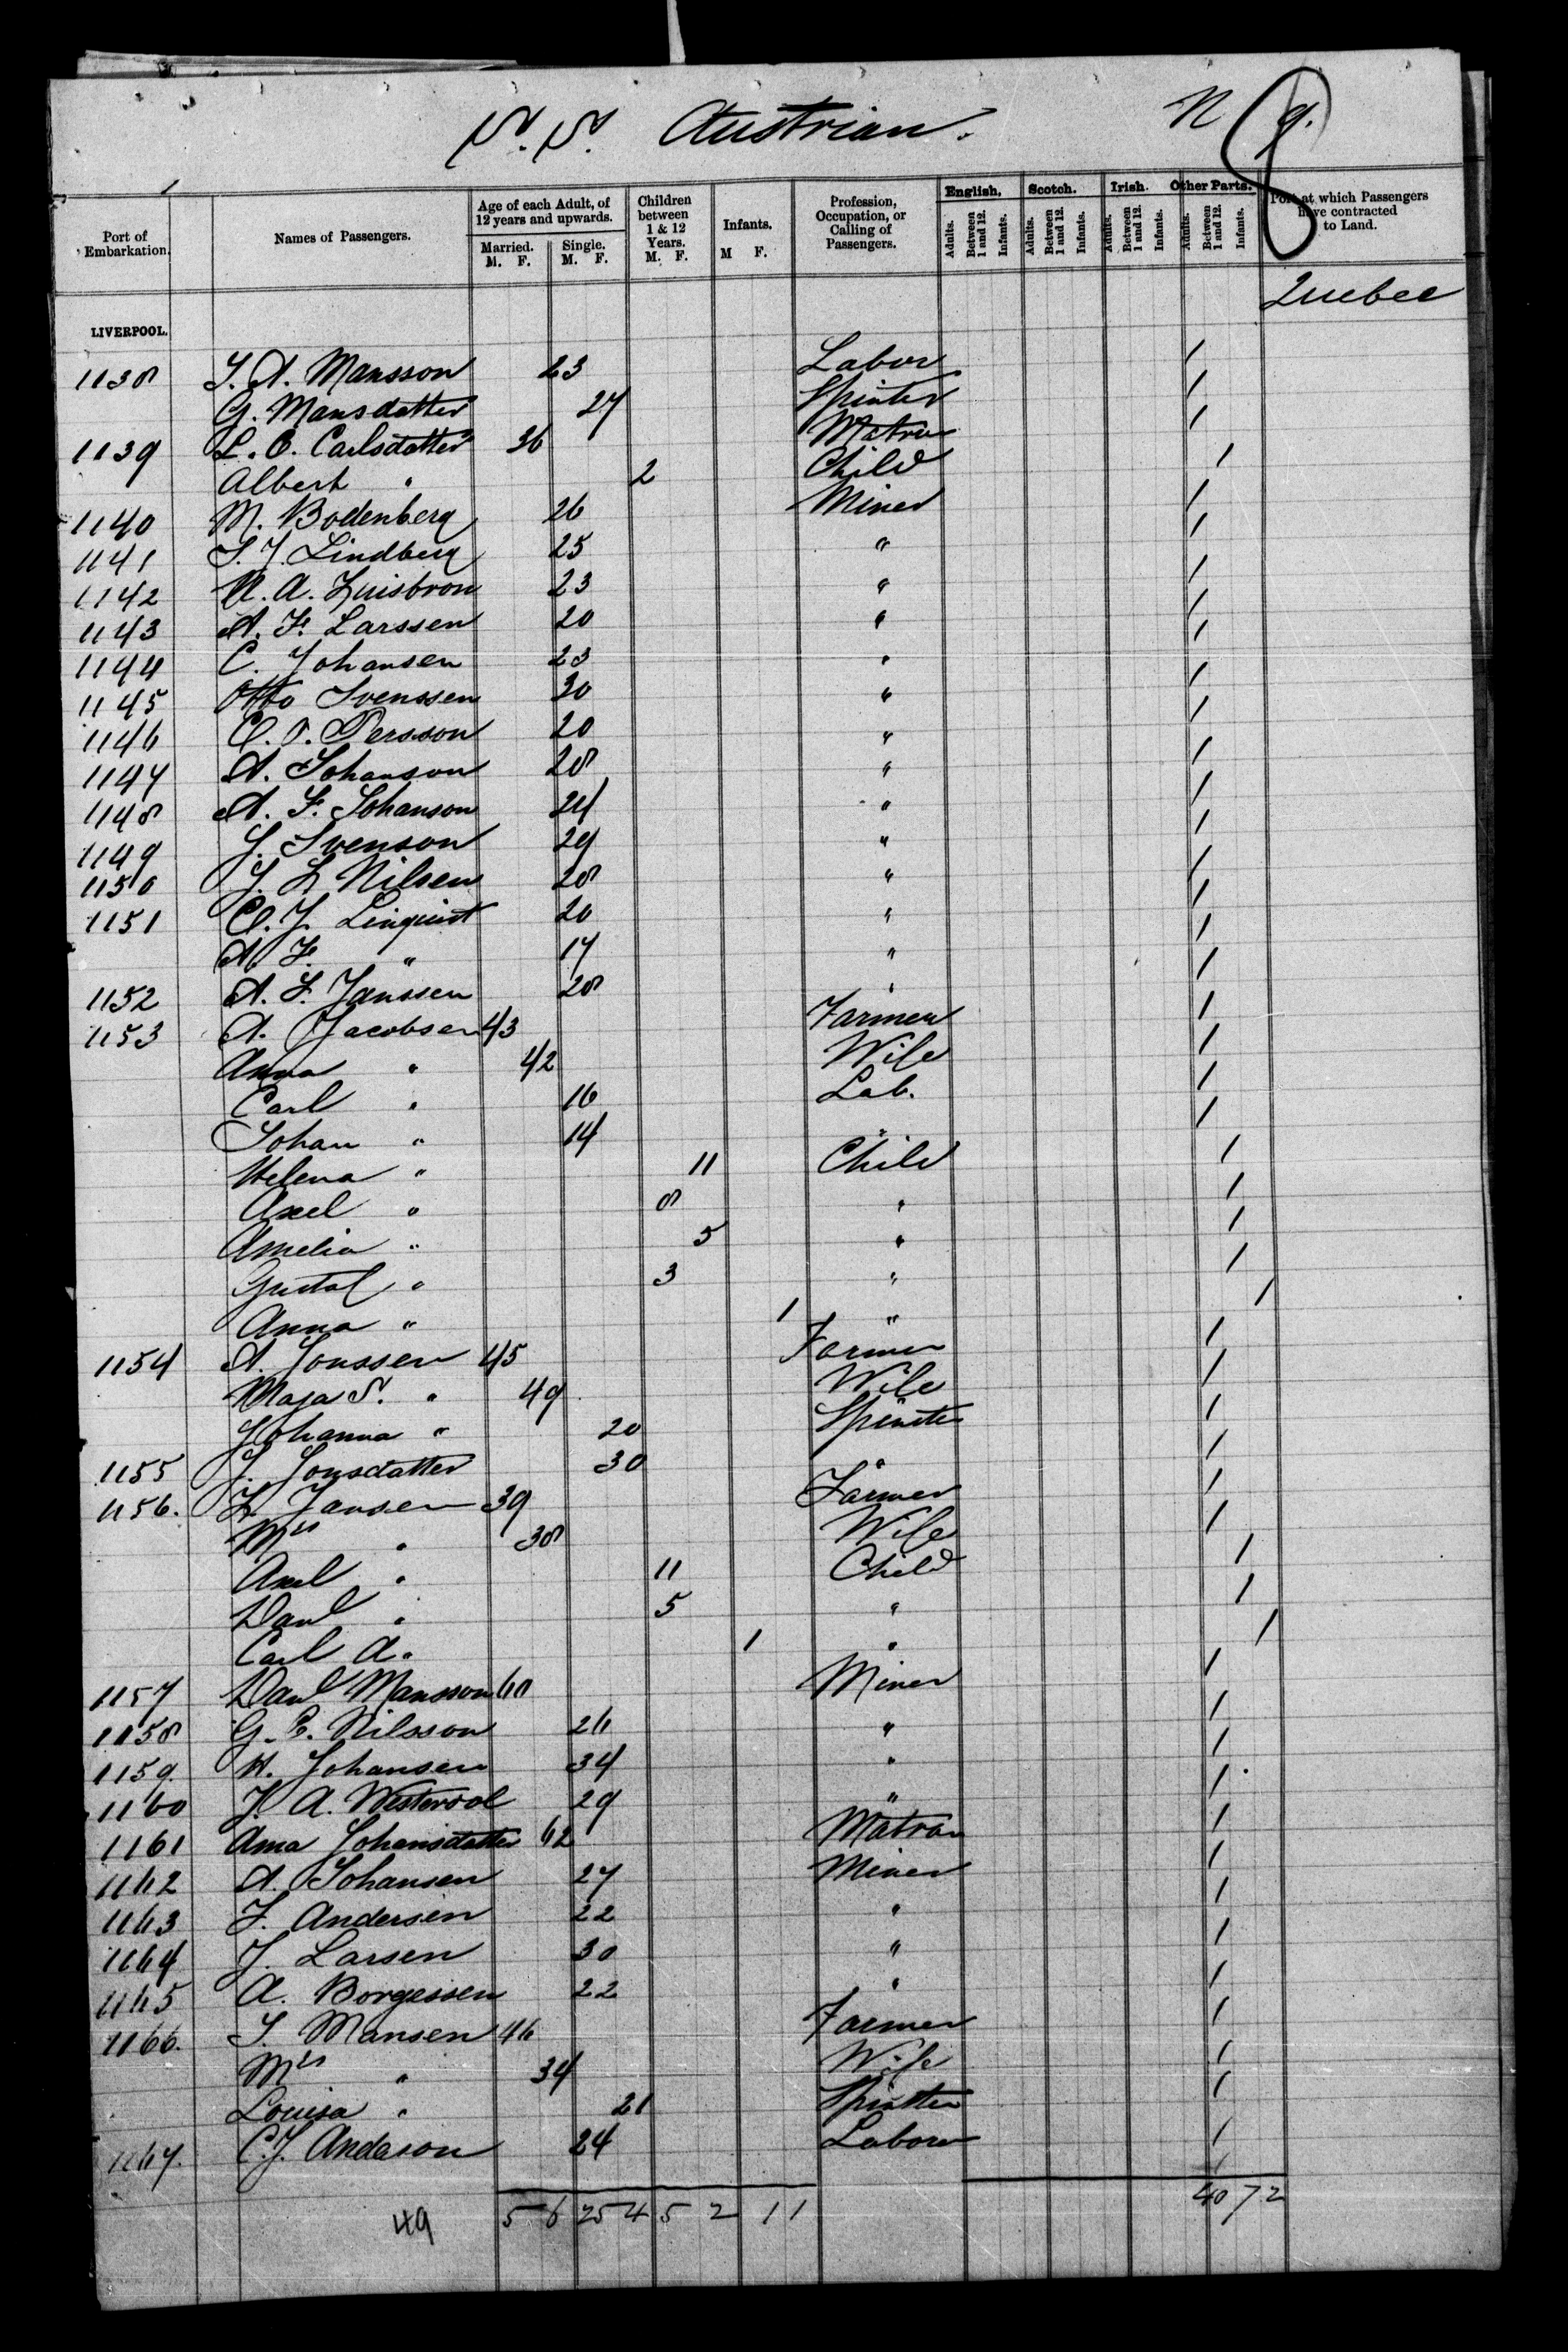 S.S. Austrian. N 9.
8
Port of Embarkation. Names of Passengers. Age of each Adult, of 12 years and upwards. Married. M. F. Single. M. F. Children between 1 & 12 Years. M. F. Infants. M F. Profession, Occupation, or Calling of Passengers. English. Adults. Between 1 and 12. Infants. Scotch. Adults. Between 1 and 12. Infants. Irish. Adults. Between 1 and 12. Infants. Other Parts. Adults. Between 1 and 12. Infants. Port at which Passengers have contracted to Land.
Quebec
LIVERPOOL.
1138 J. A. Mansson 23 Labor 1
G. Mansdatter 27 Spinter 1
1139 L. C. Carlsdatter 36 Matron 1
Albert " 2 Child 1
1140 M. Bodenberg 26 Miner 1
1141 S. J. Lindberg 25 " 1
1142 A. 23 " 1
1143 A. F. Larssen 20 " 1
1144 C. Johansen 23 " 1
1145 Otto Svenssen 30 " 1
1146 C. O. Persson 20 " 1
1147 A. Johanson 28 " 1
1148 A. F. Johanson 24 " 1
1149 J. Svenson 29 " 1
1150 J. L Nilsen 28 " 1
1151 C. J. Linquist 20 " 1
A. F. " 17 " 1
1152 A. F. Janssen 28 " 1
1153 A. Jacobsen 43 Farmer 1
Anna " 42 Wife 1
Carl " 16 Lab. 1
Johan " 14 " 1
Helena " 11 Child 1
Axel " 8 " 1
Amelia " 5 " 1
Gustaf " 3 " 1
Anna " 1 " 1
1154 A. Jonssen 45 Farmer 1
Maja S. " 49 Wife 1
Johanna " 20 Spinster 1
1155 J. Jonsdatter 30 " 1
1156. L. Jansen 39 Farmer 1
Mrs " 38 Wife 1
Axel " 11 Child 1
" 5 " 1
Carl A. 1 " 1
1157 Mansson 60 Miner 1
1158 G. E. Nilsson 26 " 1
1159. H. Johansen 34 " 1
1160 J. A. 29 " 1
1161 Anna Johansdatter 62 Matron 1
1162 A. Johansen 27 Miner 1
1163 F. Andersen 22 " 1
1164 J. Larsen 30 " 1
1165 A. Borgessen 22 " 1
1166. S. Mansen 46 Farmer 1
Mrs " 34 Wife 1
Louisa " 21 Spinster 1
1167. C. J. Andason 24 Labor 1
49 5 6 25 4 5 2 1 1 40 7 2